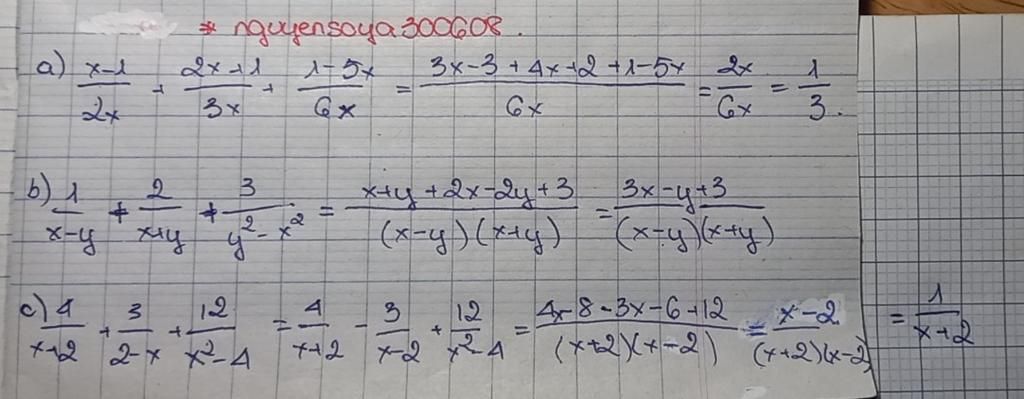 * nguyensoya300608.
a) (x-1)/(2x) + (2x+1)/(3x) + (1-5x)/(6x) = (3x-3+4x+2+1-5x)/(6x) = (2x)/(6x) = 1/3.
b) 1/(x-y) + 2/(x+y) + 3/(y²-x²) = (x+y+2x-2y+3)/((x-y)(x+y)) = (3x-y+3)/((x-y)(x+y))
c) 4/(x+2) + 3/(2-x) + 12/(x²-4) = 4/(x+2) - 3/(x-2) + 12/(x²-4) = (4x-8-3x-6+12)/((x+2)(x-2)) = (x-2)/((x+2)(x-2)) = 1/(x+2)